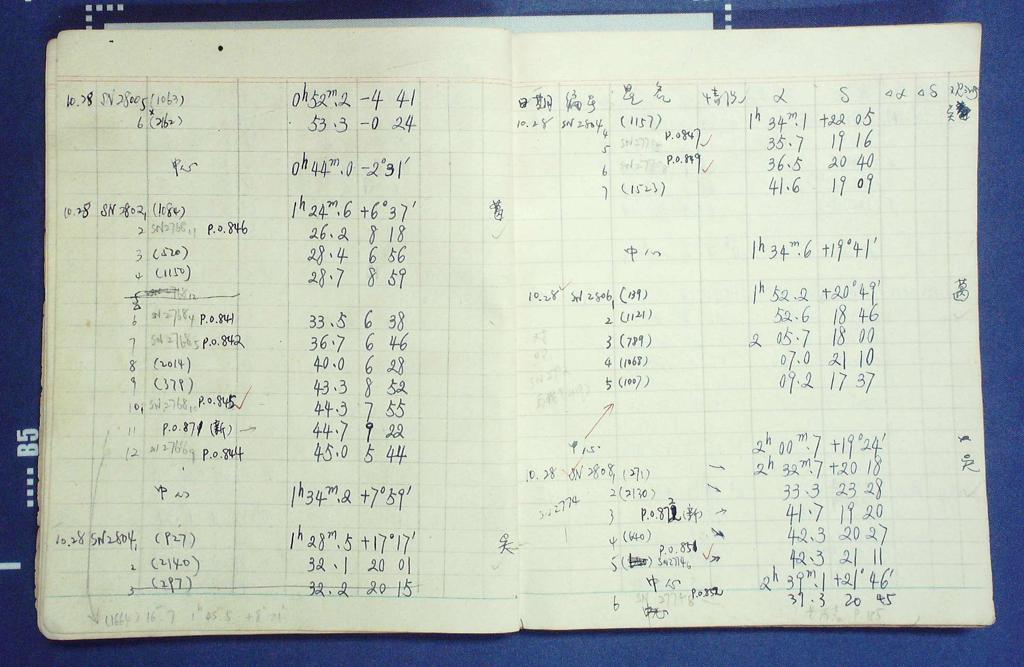 10.28 SN2800 5 (1063) 0h52m.2 -4 41
6 (2162) 53.3 -0 24
中心 0h44m.0 -2°31'
10.28 SN2802 1 (1084) 1h24m.6 +6°37' 葛
2 SN2768 11 P.O.846 26.2 8 18
3 (520) 28.4 6 56
4 (1150) 28.7 8 59
6 SN2768 P.O.841 33.5 6 38
7 SN2768 5 P.O.842 36.7 6 46
8 (2014) 40.0 6 28
9 (379) 43.3 8 52
10 SN2768 10 P.O.845 ✓ 44.3 7 55
11 P.O.871 (新) → 44.7 9 22
12 P.O.844 45.0 5 44
中心 1h34m.2 +7°59'
10.28 SN2804 1 (927) 1h28m.5 +17°17' 吴
2 (2140) 32.1 20 01
3 (297) 32.2 20 15
日期 编号 星名 情况 α δ Δα Δδ
10.28 SN2804 4 (1157) 1h34m.1 +22 05
5 P.O.847 ✓ 35.7 19 16
6 P.O.849 ✓ 36.5 20 40
7 (1523) 41.6 19 09
中心 1h34m.6 +19°41'
10.28 SN2806 1 (139) 1h52.2 +20°49' 葛
2 (1121) 52.6 18 46
3 (789) 2 05.7 18 00
4 (1068) 07.0 21 10
5 (1007) 09.2 17 37
中心 2h00m.7 +19°24'
10.28 SN2808 1 (271) 2h32m.7 +20 18 吴
SN2774 2 (2130) 33.3 23 28
3 P.O.872 (新) → 41.7 19 20
4 (640) 42.3 20 27
5 SN2746 P.O.851 ✓ 42.3 21 11
中心 2h39m.1 +21°46'
6 P.O.852 37.3 20 45
B5